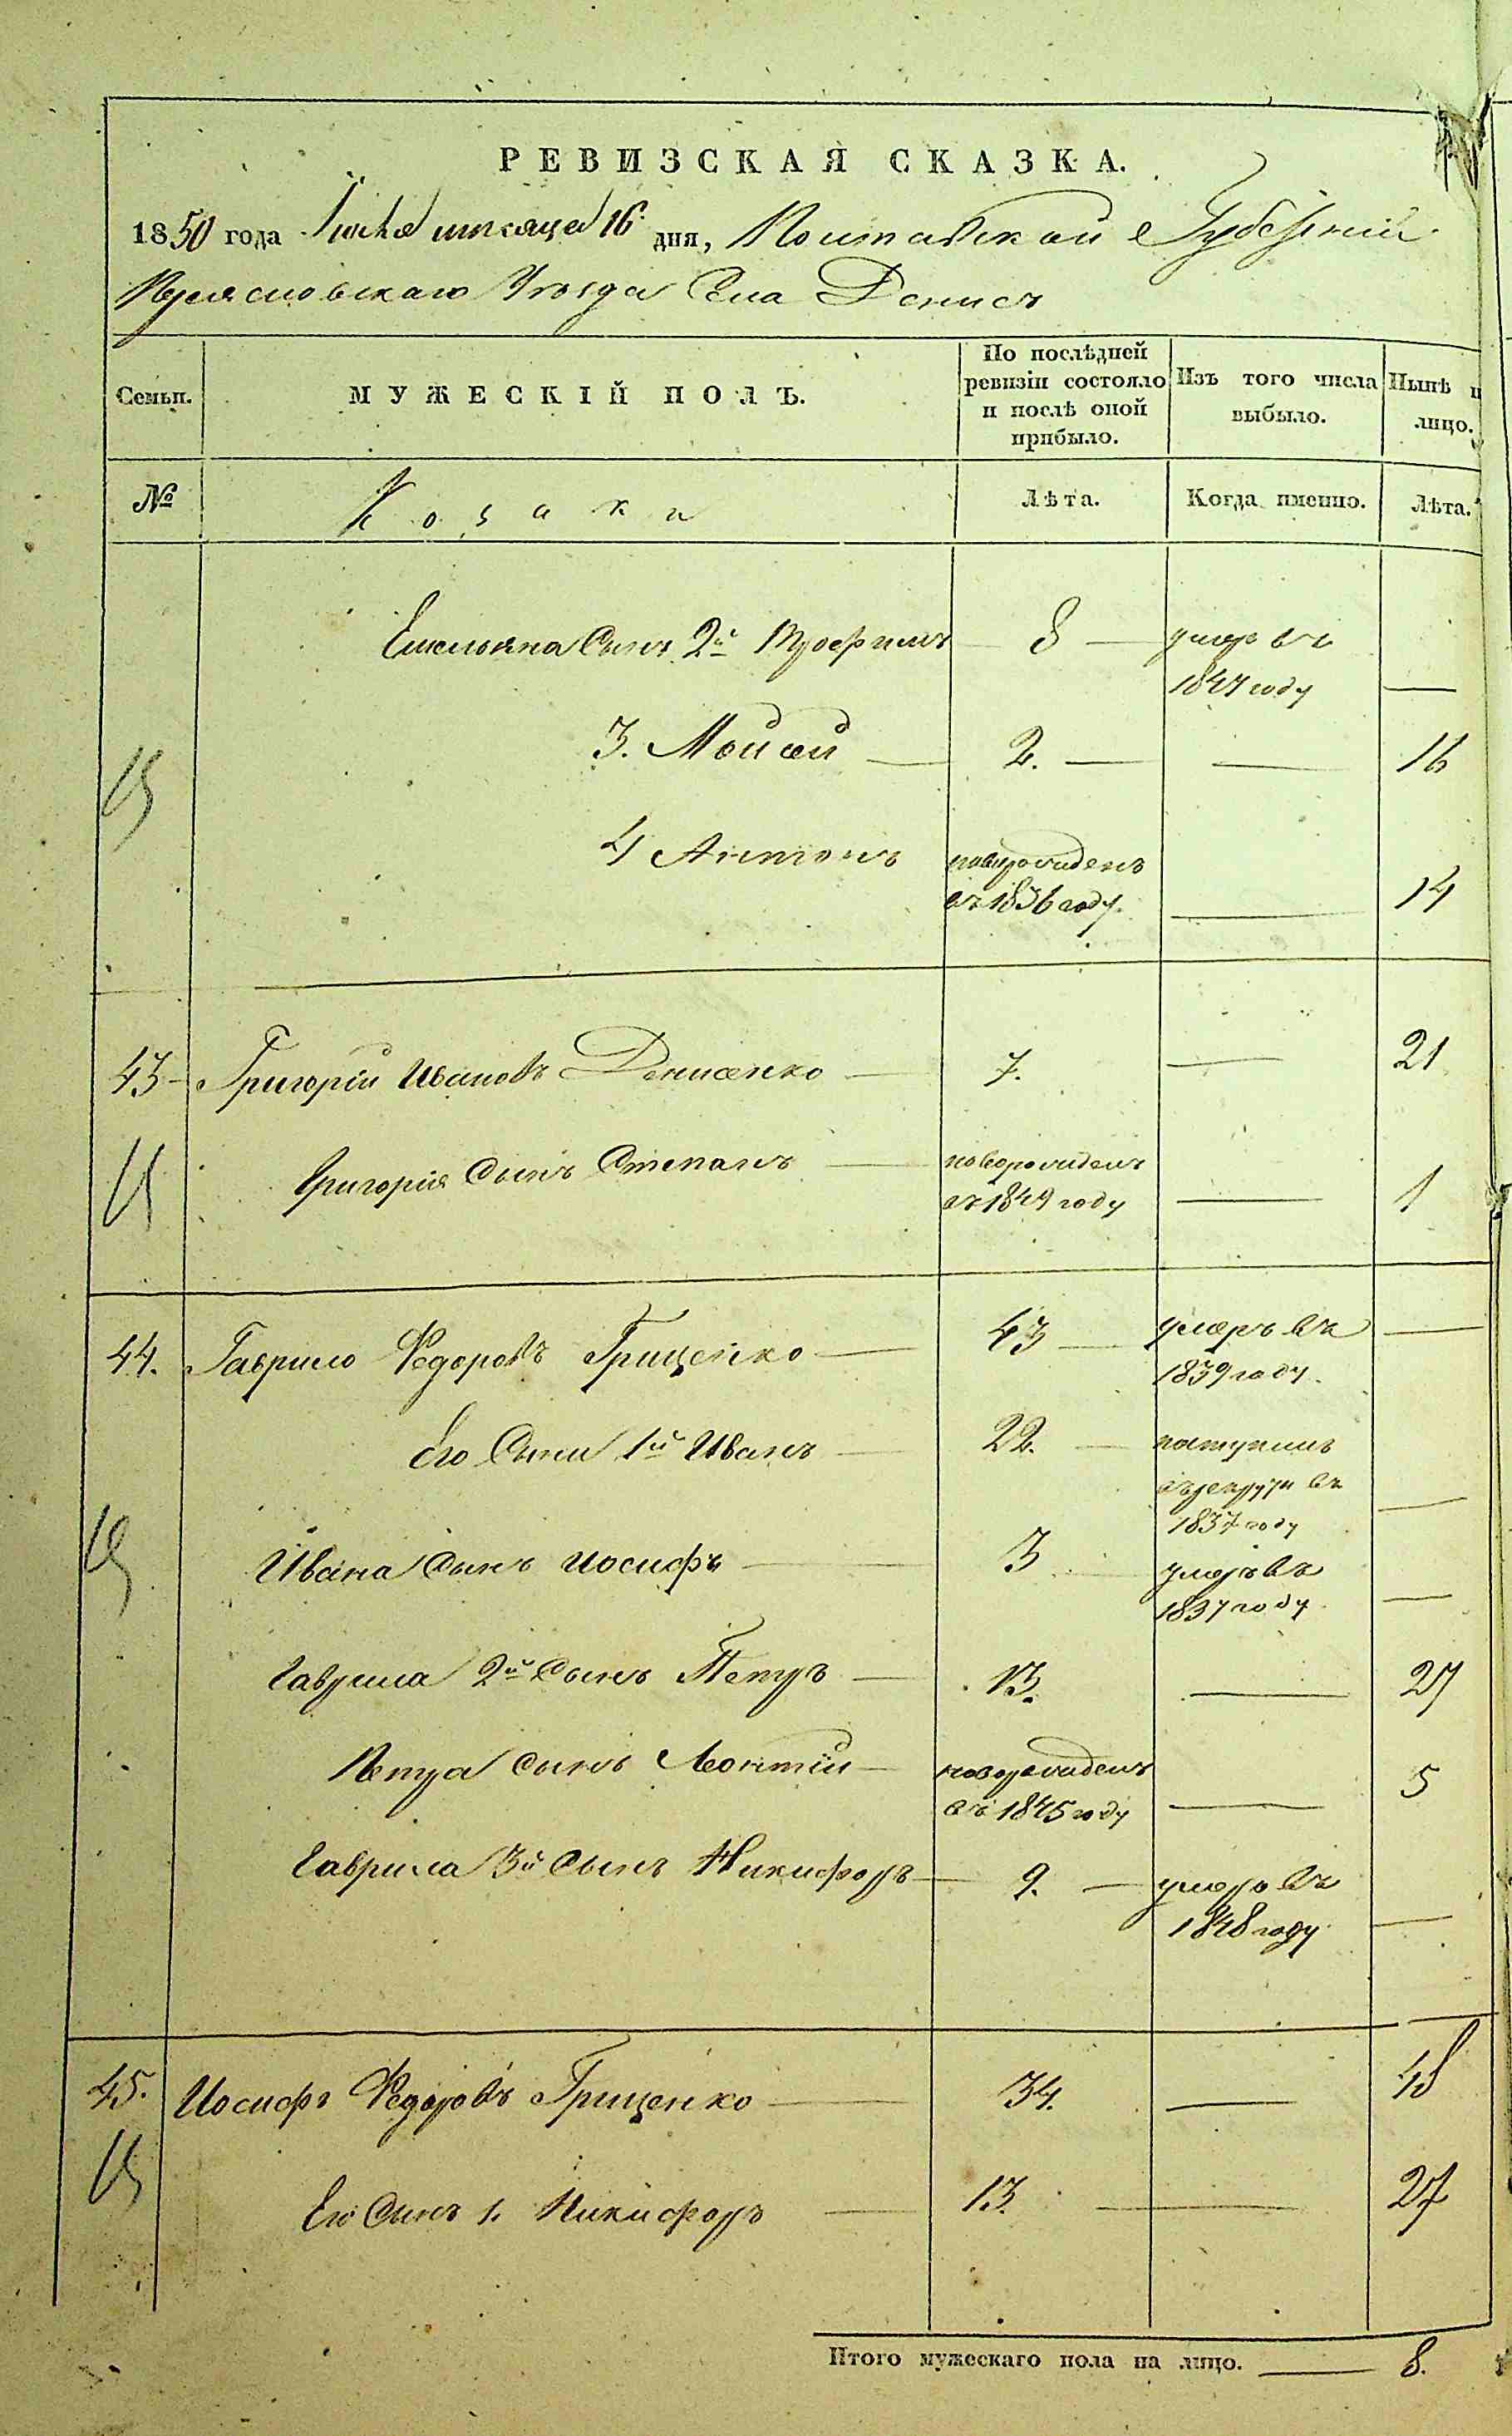 РЕВИЗСКАЯ СКАЗКА.
1850 года Іюня мѣсяца 16 дня, Полтавской Губерніи
Переясловскаго Уѣзда Села Денисъ
Семьи. МУЖЕСКІЙ ПОЛЪ. По послѣдней ревизіи состояло и послѣ оной прибыло. Изъ того числа выбыло. Нынѣ н лицо.
№ Козаки Лѣта. Когда именно. Лѣта.
Емельяна Сынъ 2й Трофимъ — 8 — умеръ въ
1847 году —
3. Мойсей — 2. — — 16
4 Антонъ новорожденъ
въ 1836 году. — 14
43 - Григорій Ивановъ Денисенко — 7. — 21
Григорія Сынъ Степанъ — новорожденъ
въ 1849 году — 1
44. Гаврило Федоровъ Гриценко — 43 — умеръ въ —
1839 году.
Его Сыни 1й Иванъ — 22. — поступилъ
въ рекруты въ
1837 году —
Ивана Сынъ Иосифъ — 3 умеръ въ
1837 году. —
Гаврила 2й Сынъ Петръ — 13. — 27
Петра сынъ Леонтій — новорожденъ
въ 1845 году — 5
Гаврила 3й Сынъ Никифоръ — 9. — умеръ въ
1848 году —
45. Иосифъ Федоровъ Гриценко — 34. — 48
Его Сынъ 1. Никифоръ — 13. — 27
Итого мужескаго пола на лицо. — 8.